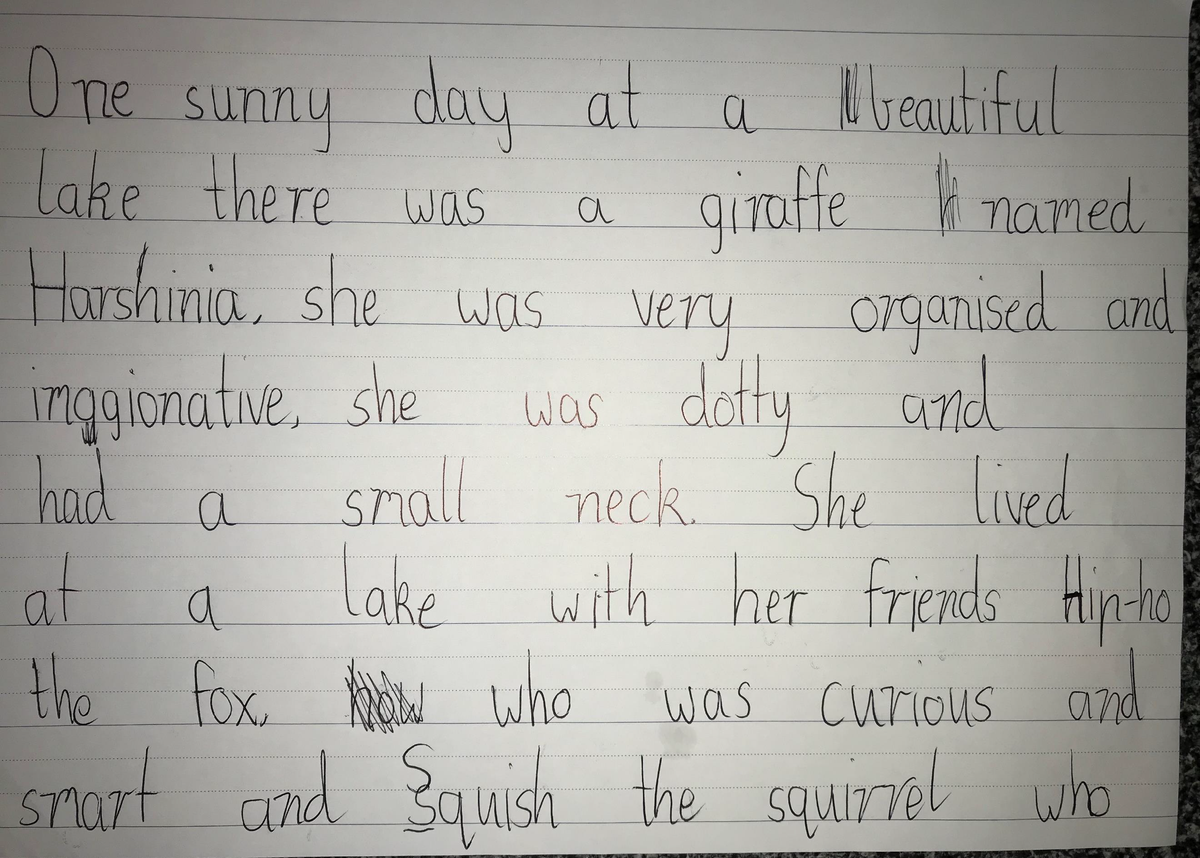 One sunny day at a beautiful
lake there was a giraffe named
Harshinia, she was very organised and
imggionative, she was dotty and
had a small neck. She lived
at a lake with her friends Hip-ho
the fox, who was curious and
smart and Squish the squirrel who